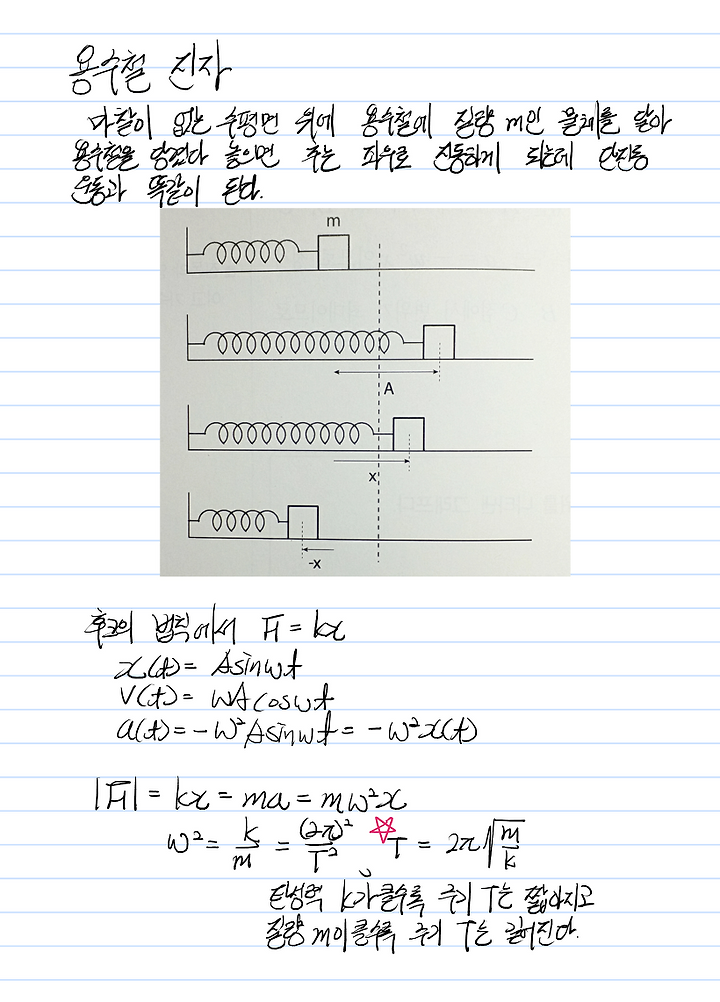 용수철 진자
마찰이 없는 수평면 위에 용수철에 질량 m인 물체를 달아
용수철을 당겼다 놓으면 주는 좌우로 진동하게 되는데 단진동
운동과 똑같이 된다.
m
A
x
-x
후크의 법칙에서 F = kx
x(t) = Asinωt
V(t) = ωAcosωt
a(t) = -ω²Asinωt = -ω²x(t)
|F| = kx = ma = mω²x
ω² = k/m = (2π)²/T² ☆T = 2π√(m/k)
탄성력 k가 클수록 주기 T는 짧아지고
질량 m이 클수록 주기 T는 길어진다.